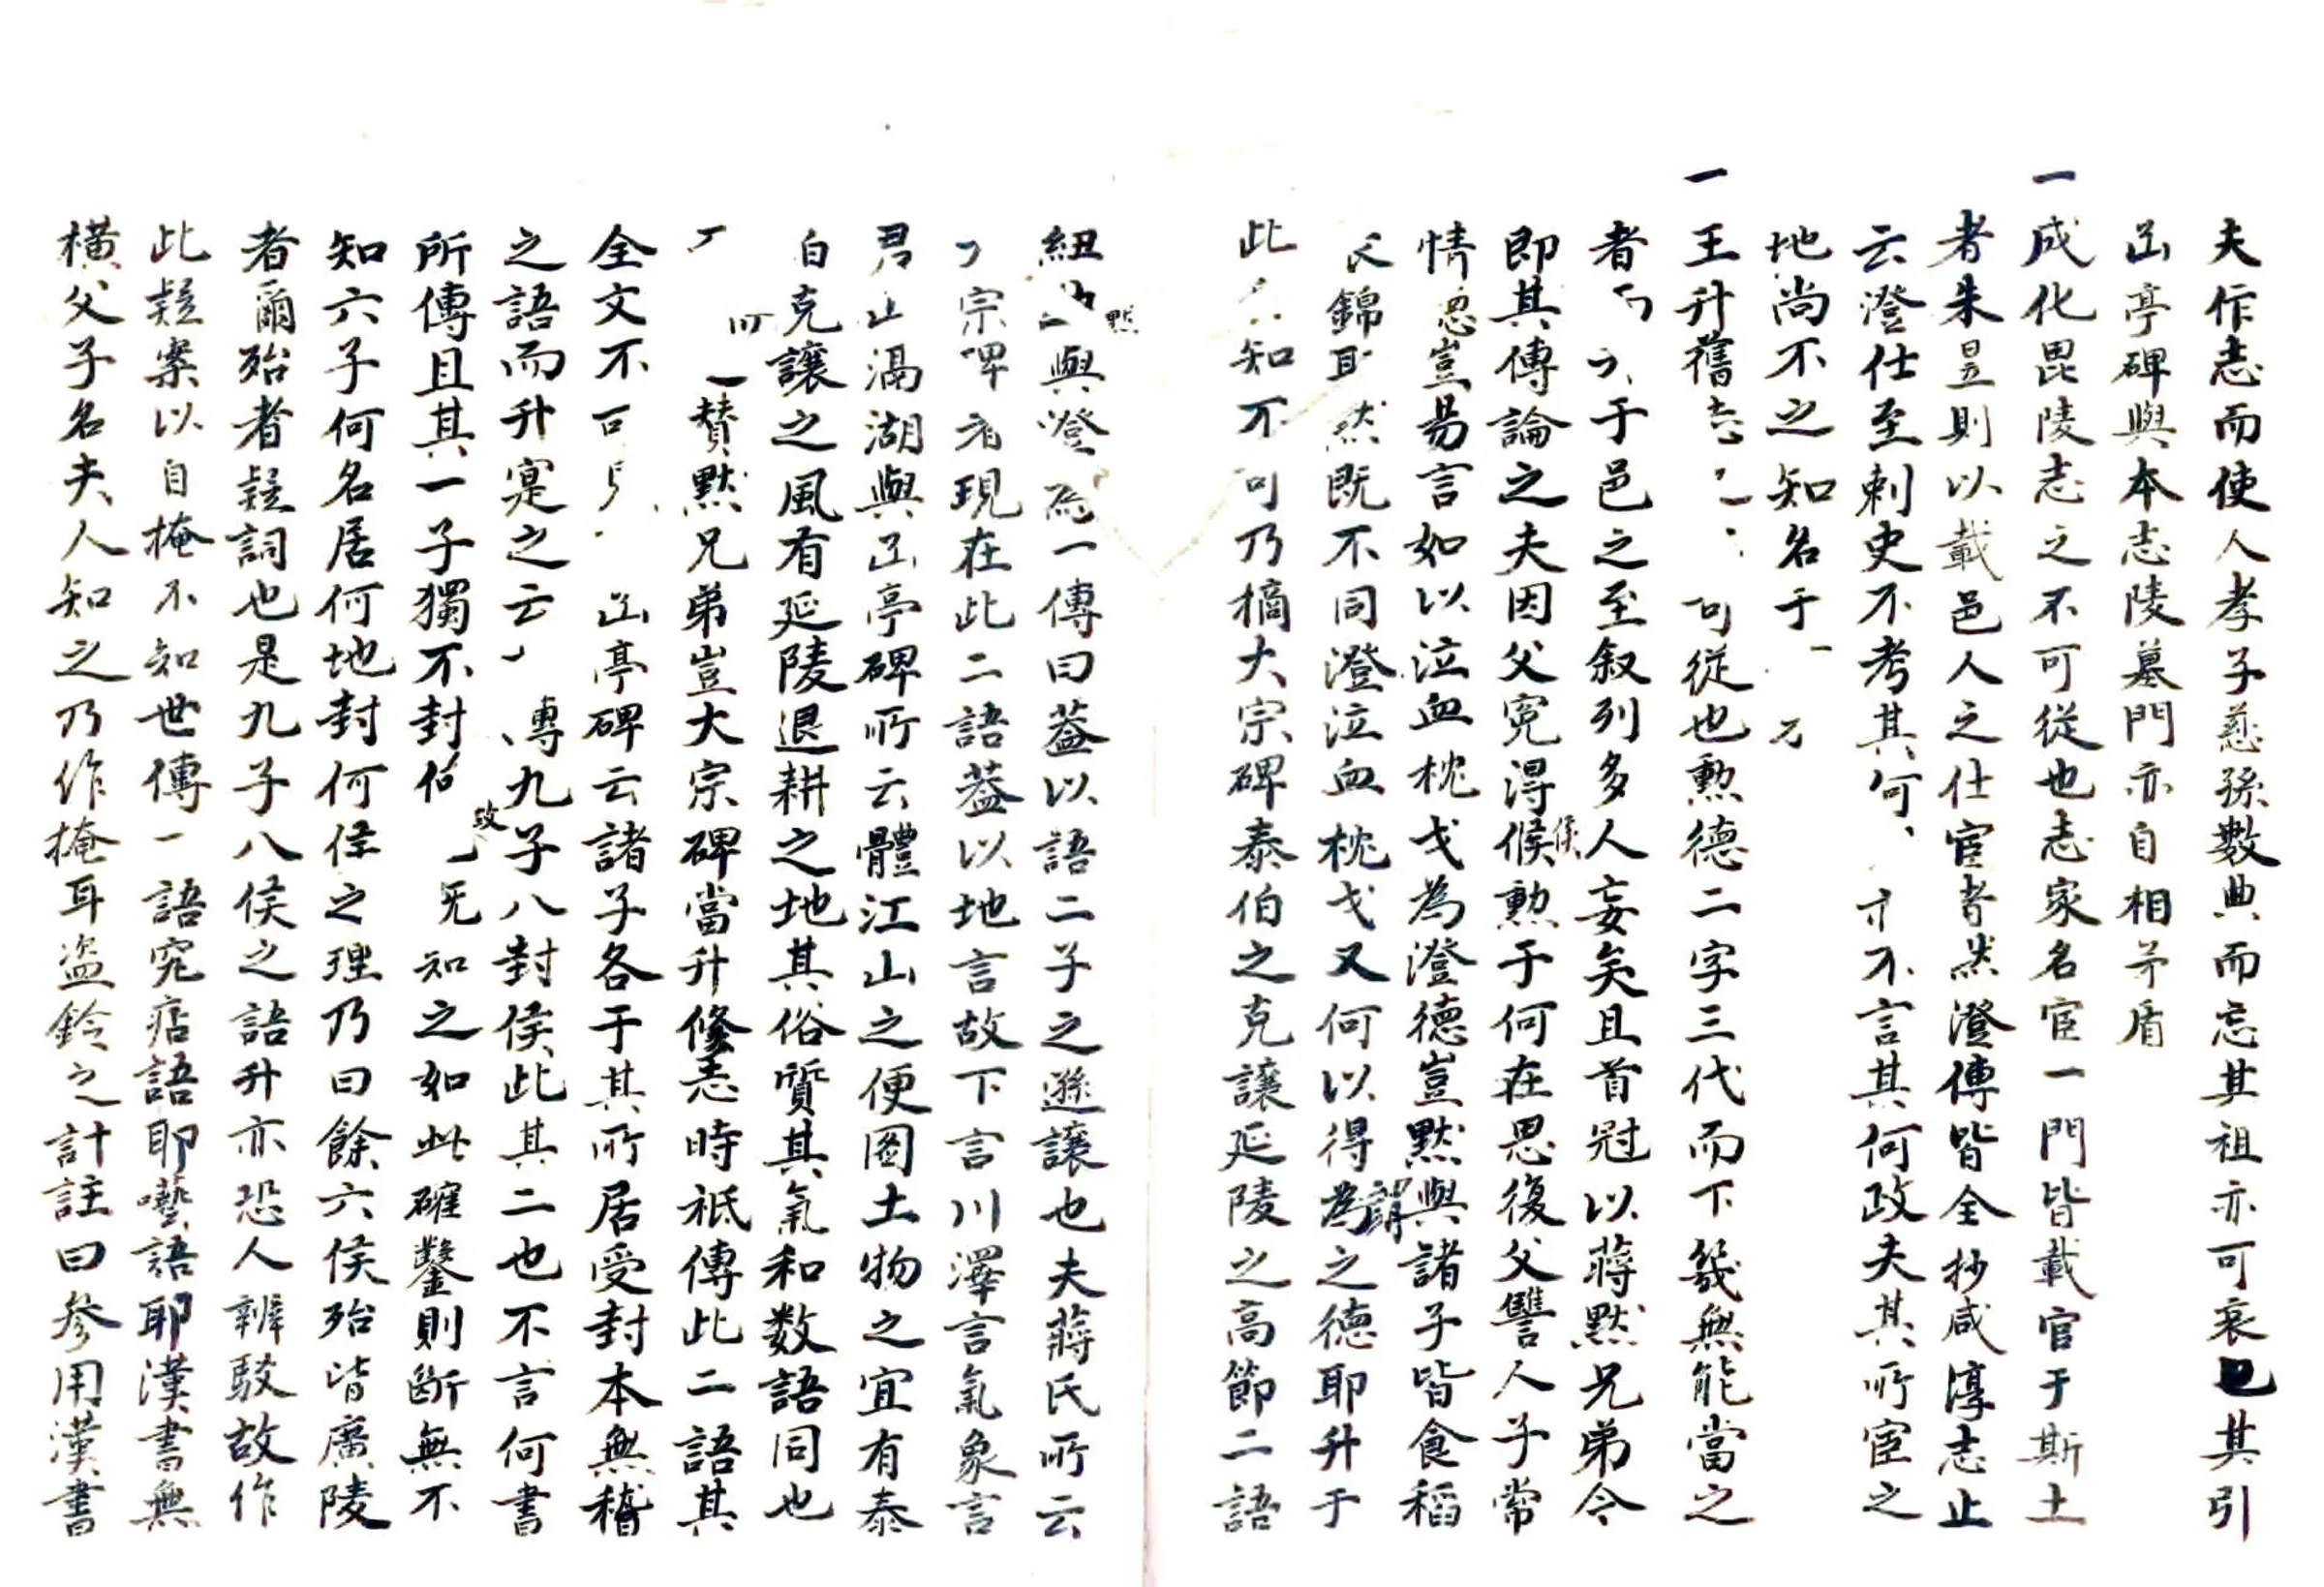 夫作志而使人孝子慈孫數典而忘其祖亦可哀也其引
凾亭碑與本志陵墓門亦自相矛盾
一成化毘陵志之不可從也志家名宦一門皆載官于斯土
者朱昱則以載邑人之仕宦者然澄傳皆全抄咸淳志止
云澄仕至剌史不考其何不言其何政夫其所宦之
地尚不之知名于
一王升舊志可從也勲德二字三代而下㡬無能當之
者于邑之至叙列多人妄矣且首冠以蔣默兄弟今
即其傳論之夫因父寃得候侯勲于何在思復父讐人子常
情忽豈易言如以泣血枕戈為澄德豈默與諸子皆食稻
錦耶然既不同澄泣血枕戈又何以得為謂之德耶升于
此知不可乃摘大宗碑泰伯之克讓延陵之高節二語
紐與澄為一傳曰葢以語二子之遜讓也夫蔣氏所云
宗碑現在此二語葢以地言故下言川澤言氣象言
君山滆湖與凾亭碑所云體江山之便圖土物之宜有泰
伯克讓之風有延陵退耕之地其俗質其氣和数語同也
一賛默兄弟豈大宗碑當升修志時祇傳此二語其
全文不可凾亭碑云諸子各于其所居受封本無稽
之語而升寔之云傳九子八封侯此其二也不言何書
所傳且其一子獨不封攷无知之如此確鑿則斷無不
知六子何名居何地封何侯之理乃曰餘六侯殆皆廣陵
者爾殆者疑詞也是九子八侯之語升亦恐人辨駁故作
此疑案以自掩不知世傳一語究㾑語耶囈語耶漢書無
橫父子名夫人知之乃作掩耳盜鈴之計註曰參用漢書